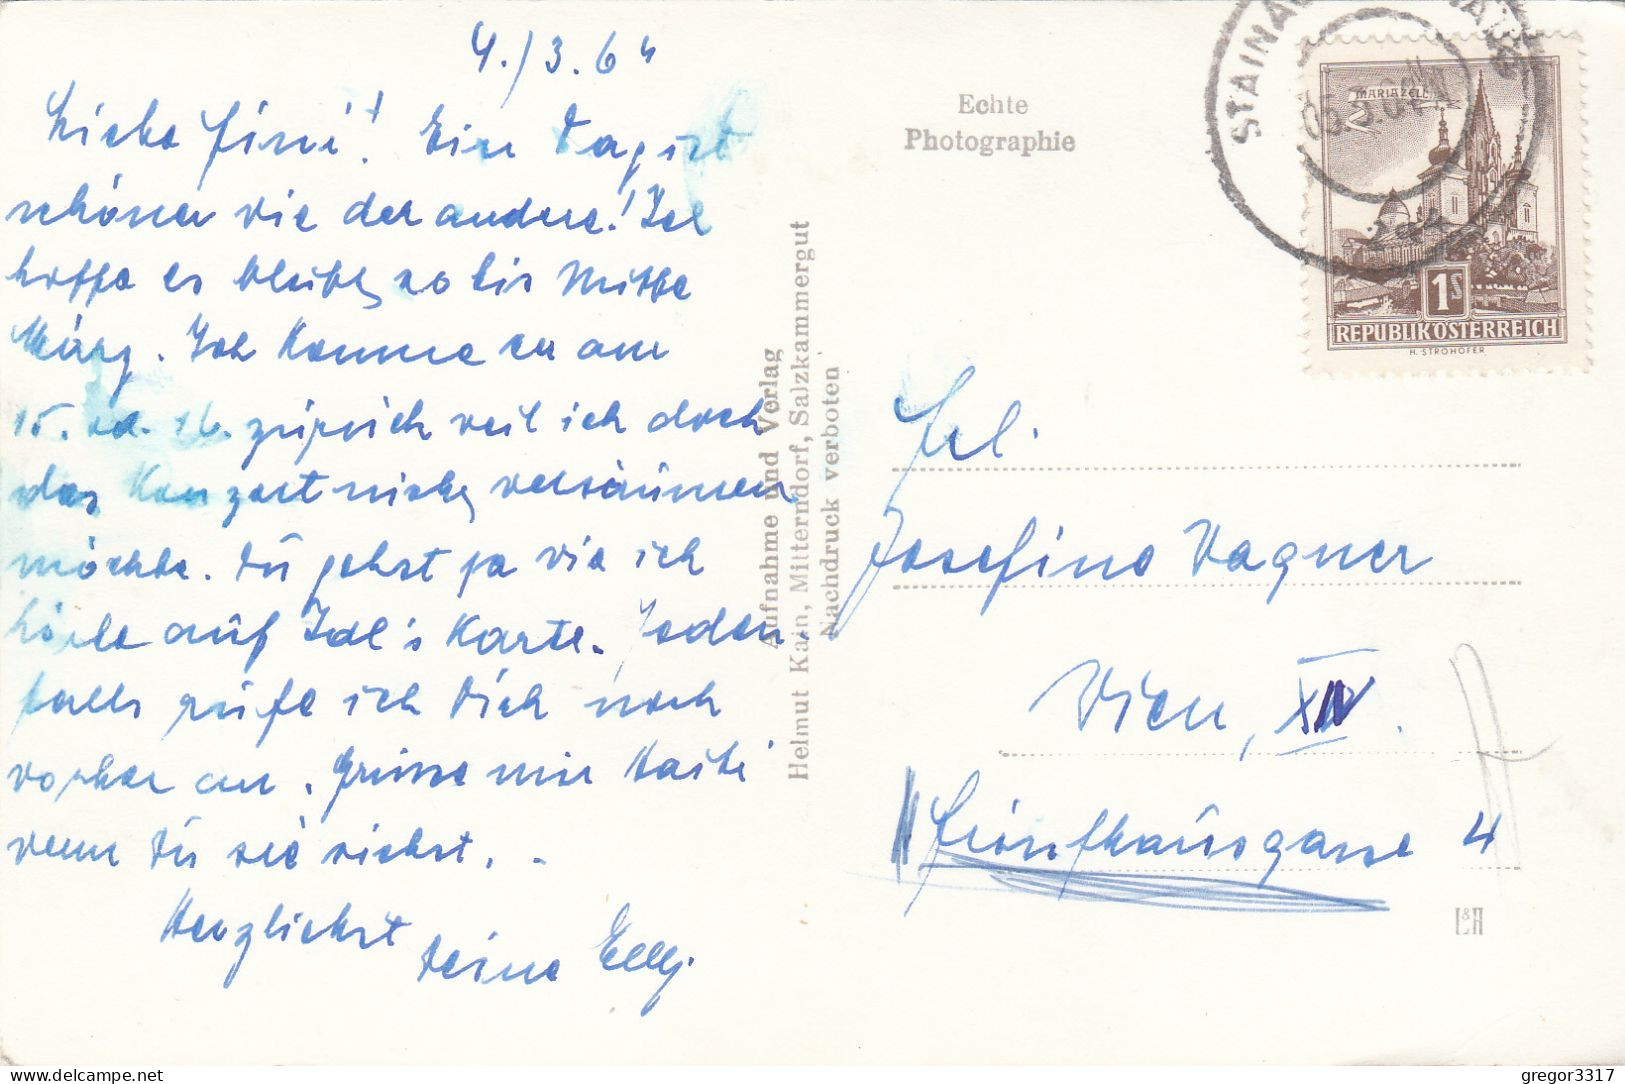 4./3.64
Liebe Fini! Ein Tag ist
schöner wie der andere! Ich
hoffe es bleibt so bis Mitte
März. Ich komme ca am
15. od. 16. zurück weil ich doch
das Konzert nicht versäumen
möchte. Du gehst ja wie ich
hörte auf Idl's Karte. Jeden
falls rufe ich Dich noch
vorher an. Grüsse mir
wenn Du sie siehst.
Herzlichst Deine Elly.
Echte
Photographie
Aufnahme und Verlag
Helmut Kain, Mitterndorf, Salzkammergut
Nachdruck verboten
STAINACH
MARIAZELL
1S
REPUBLIK ÖSTERREICH
H. STROHOFER
Frl.
Josefine Wagner
Wien, XIV.
Fünfhausgasse 4
L&H
gregor3317
delcampe.net